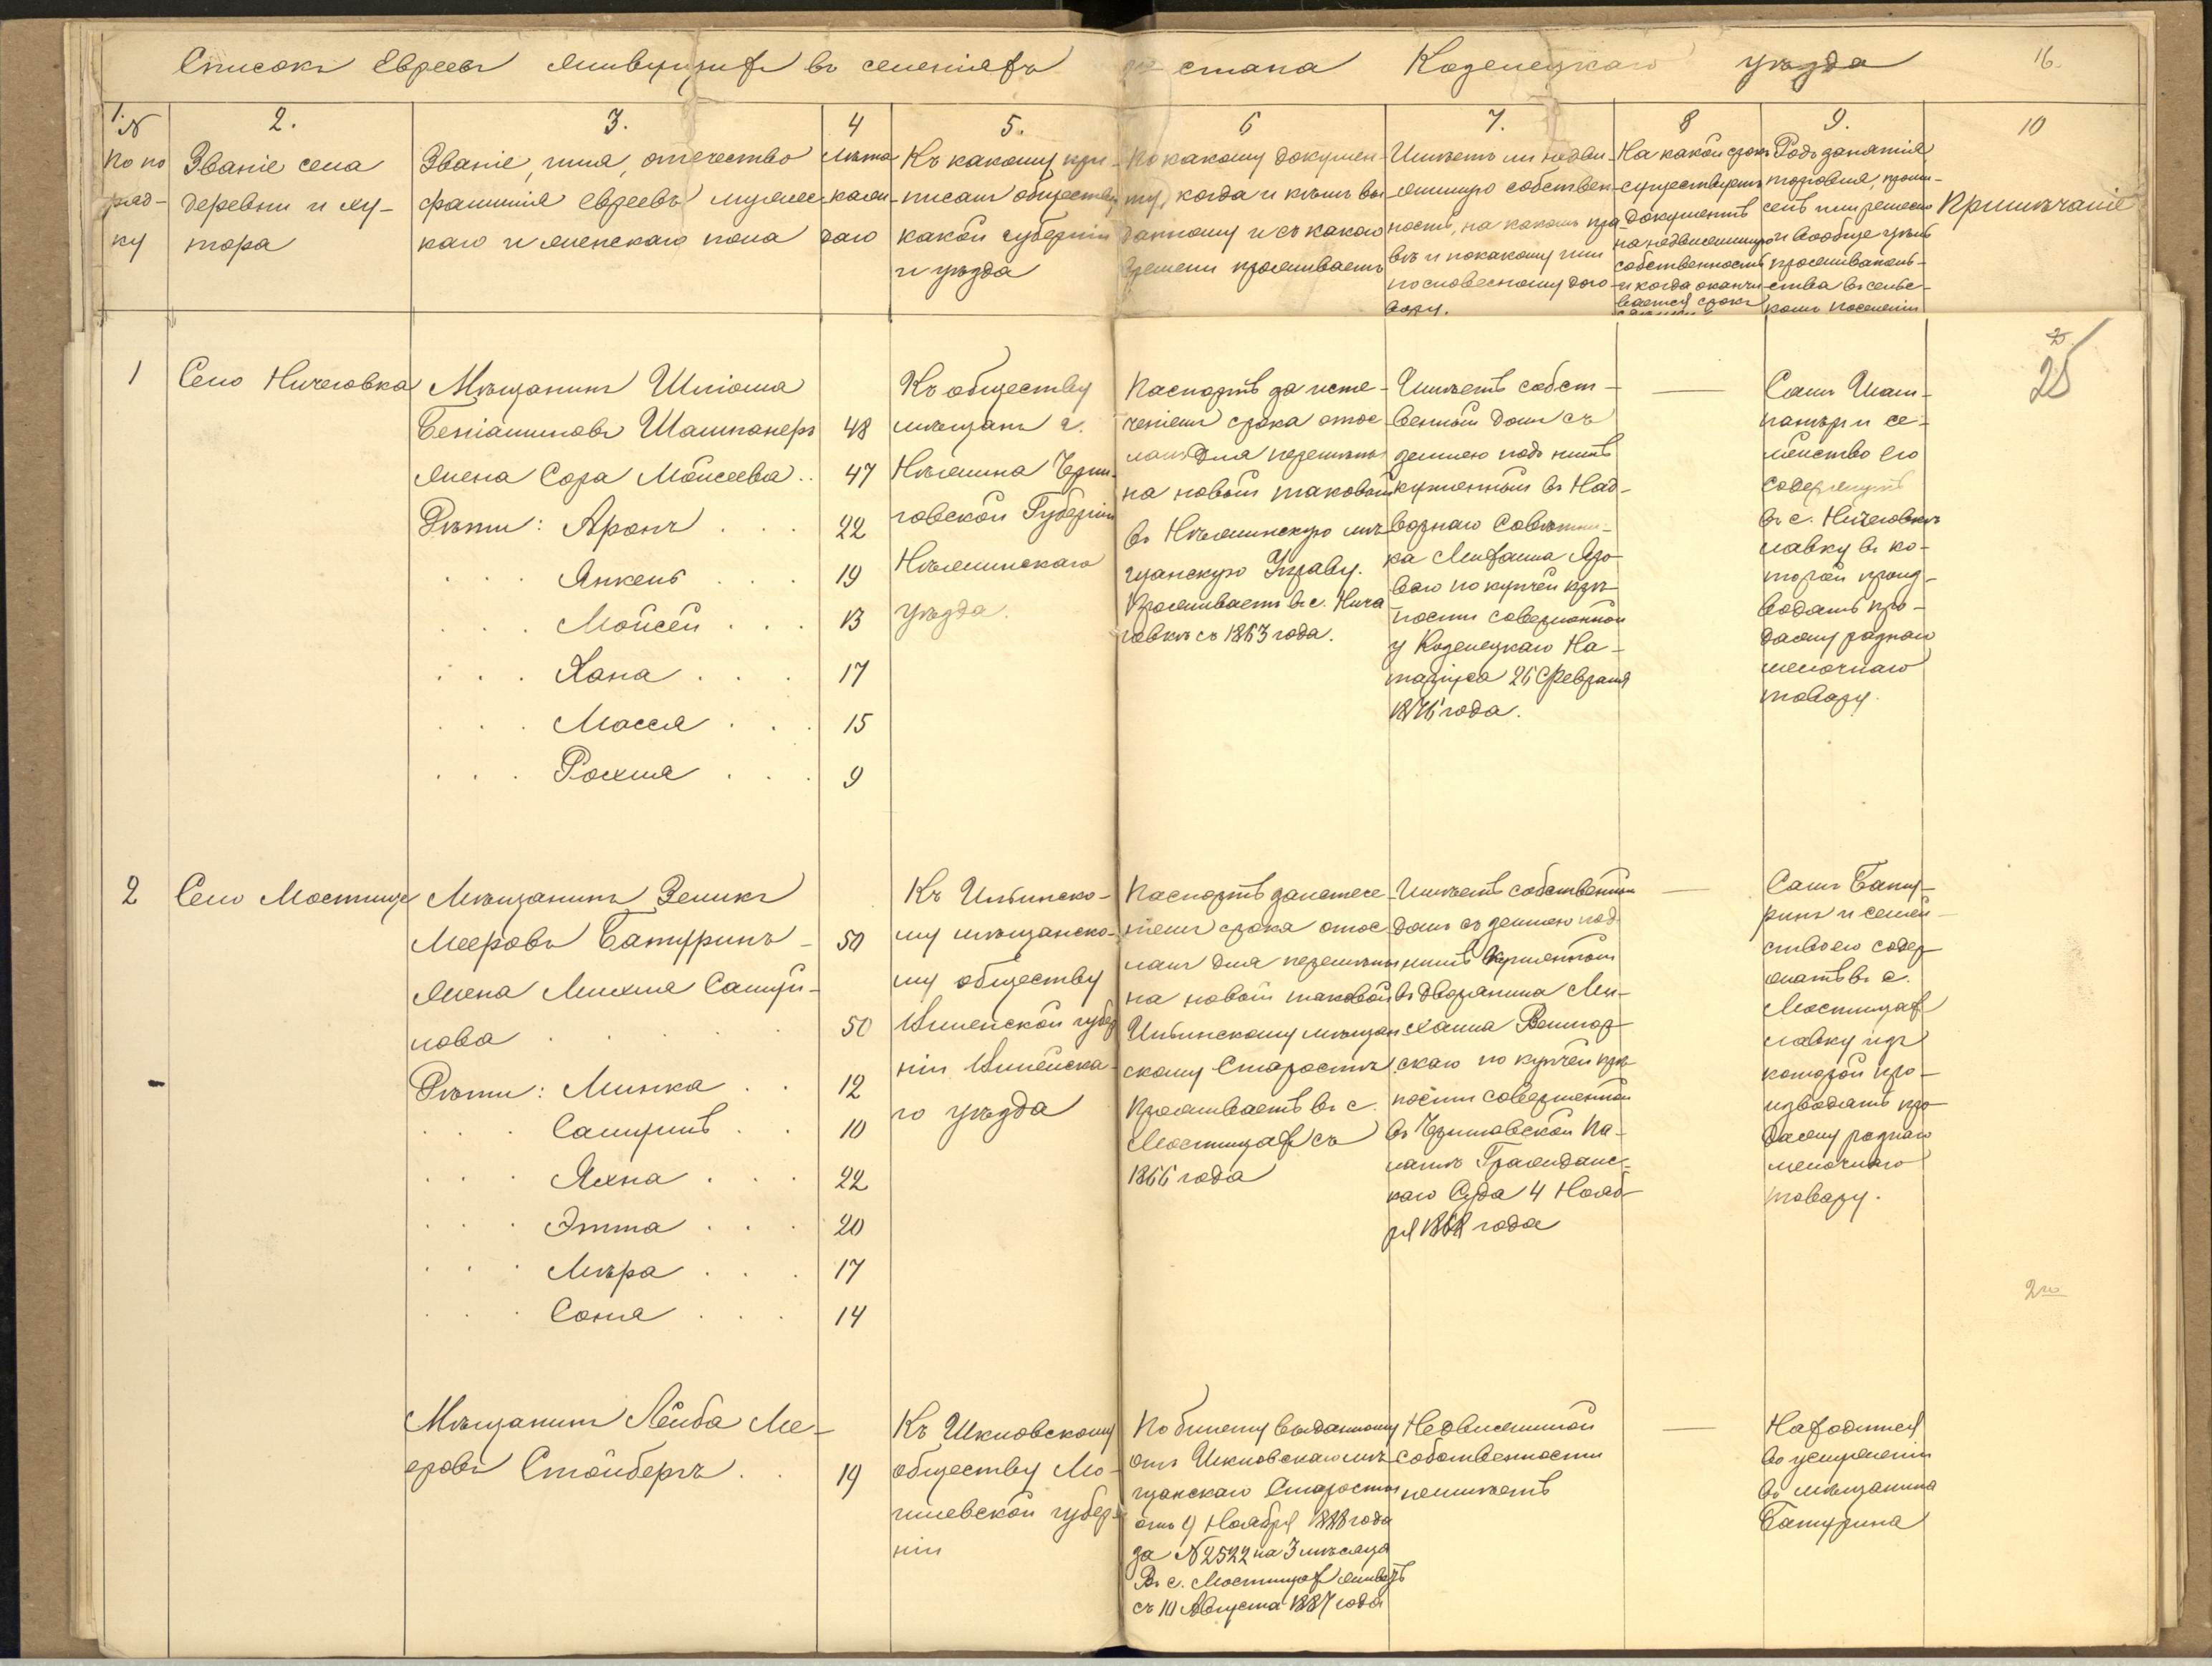 Списокъ Евреевъ живущихъ въ селеніяхъ стана Козелецкаго уѣзда
16
1.
№
По по
ряд-
ку
2.
Званіе села
деревни и ху-
тора
3.
Званіе, имя, отчество
фамилія евреевъ мужес-
каго и женскаго пола
4
Лѣта
кажд-
даго
5.
Къ какому при-
писанъ обществу
какой губерніи
и уѣзда
6
По какому докумен-
ту, когда и кѣмъ вы
данному и съ какого
времени проживаетъ
7.
Имѣетъ ли недви-
жимую собствен-
ность, на какомъ пра
вѣ и по какому или
по словесному дого-
вору.
8
На какой срокъ
существуетъ
документъ
на недвижимую
собственность
и когда оканчи-
вается срокъ
9.
Родъ занятія
торговля, промы-
селъ или ремесло
и вообще цѣль
прожи­ватель-
ства въ сельс-
комъ поселеніи
10
Примѣчаніе
1
Село Ничеговка
Мѣщанинъ Шлiома
Беніаминовъ Шампанеръ 48
жена Сора Мойсеева .. 47
Дѣти: Аронъ . . . 22
Янкель . . . 19
Мойсей . . . 13
Хана . . . 17
Масся . . . 15
Рохля . . . 9
Къ обществу
мѣщанъ г.
Нѣжина Черни-
говской Губерніи
Нѣжинскаго
уѣзда.
Паспортъ за исте-
ченіемъ срока отос
ланъ для перемѣны
на новый таковой
въ Нѣжинскую мѣ
щанскую Управу.
Проживаетъ въ с. Ниче
говкѣ съ 1863 года.
Имѣетъ собст-
венный домъ съ
землею подъ нимъ
купленный въ Над-
ворнаго Совѣтни-
ка Михаила Яро-
ваго по купчей крѣ-
пости совершенной
у Козелецкаго Но-
таріуса 26 Февраля
1876 года.
Самъ Шам-
панеръ и се-
мейство его
содержутъ
въ с. Ничеговкѣ
лавку въ ко-
торой произ-
водятъ про-
дажу разнаго
мелочнаго
товару.
25
2
Село Мостище
Мѣщанинъ Зеликъ
Мееровъ Батуринъ - 50
Жена Михля Самуй-
лова 50
Дѣти: Минка . . 12
Самуилъ . . 10
Яхна . . . 22
Этта . . . 20
Мѣра . . . 17
Соня . . . 14
Къ Ильинско-
му мѣщанско-
му обществу
Виленской губер
ніи Вилейска-
го уѣзда
Паспортъ за истече-
ніемъ срока отос
ланъ для перемѣны
на новый таковой
Ильинскому мѣщан
скому Старостѣ
Проживаетъ въ с.
Мостищахъ съ
1866 года
Имѣетъ собственный
домъ съ землею под
нимъ купленный
въ дворянина Ми-
хаила
скаго по купчей крѣ
пости совершенной
въ Черниговской Па-
латѣ Гражданс-
каго Суда 4 Нояб-
ря 1868 года
Самъ Бату-
ринъ и семей-
ство его содер-
жатъ въ с.
Мостищахъ
лавку изъ
которой про-
изводятъ про
дажу разнаго
мелочнаго
товару.
2го
Мѣщанинъ Лейба Ме-
еровъ Стойберъ . . 19
Къ Шкловскому
обществу Мо-
гилевской губер-
ніи
По билету выданному
отъ Шкловскаго мѣ-
щанскаго Старосты
отъ 9 Ноября 1888 года
за № 2522 на 3 мѣсяца
Въ с. Мостищахъ живетъ
съ 10 Августа 1887 года
Недвижимой
собственности
неимѣетъ
Находится
въ услуженіи
въ мѣщанина
Батурина